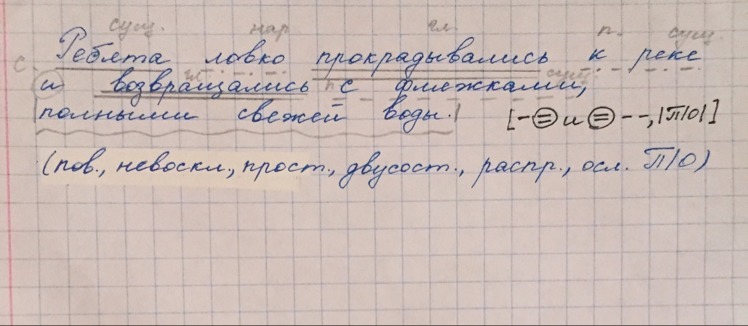 сущ. нар. гл. п. сущ.
Ребята ловко прокрадывались к реке
с. гл. п сущ.
и возвращались с фляжками,
полными свежей воды. | [-⊜ и ⊜ - -, |П/О|]
(пов., невоскл., прост., двусост., распр., осл. П/О)